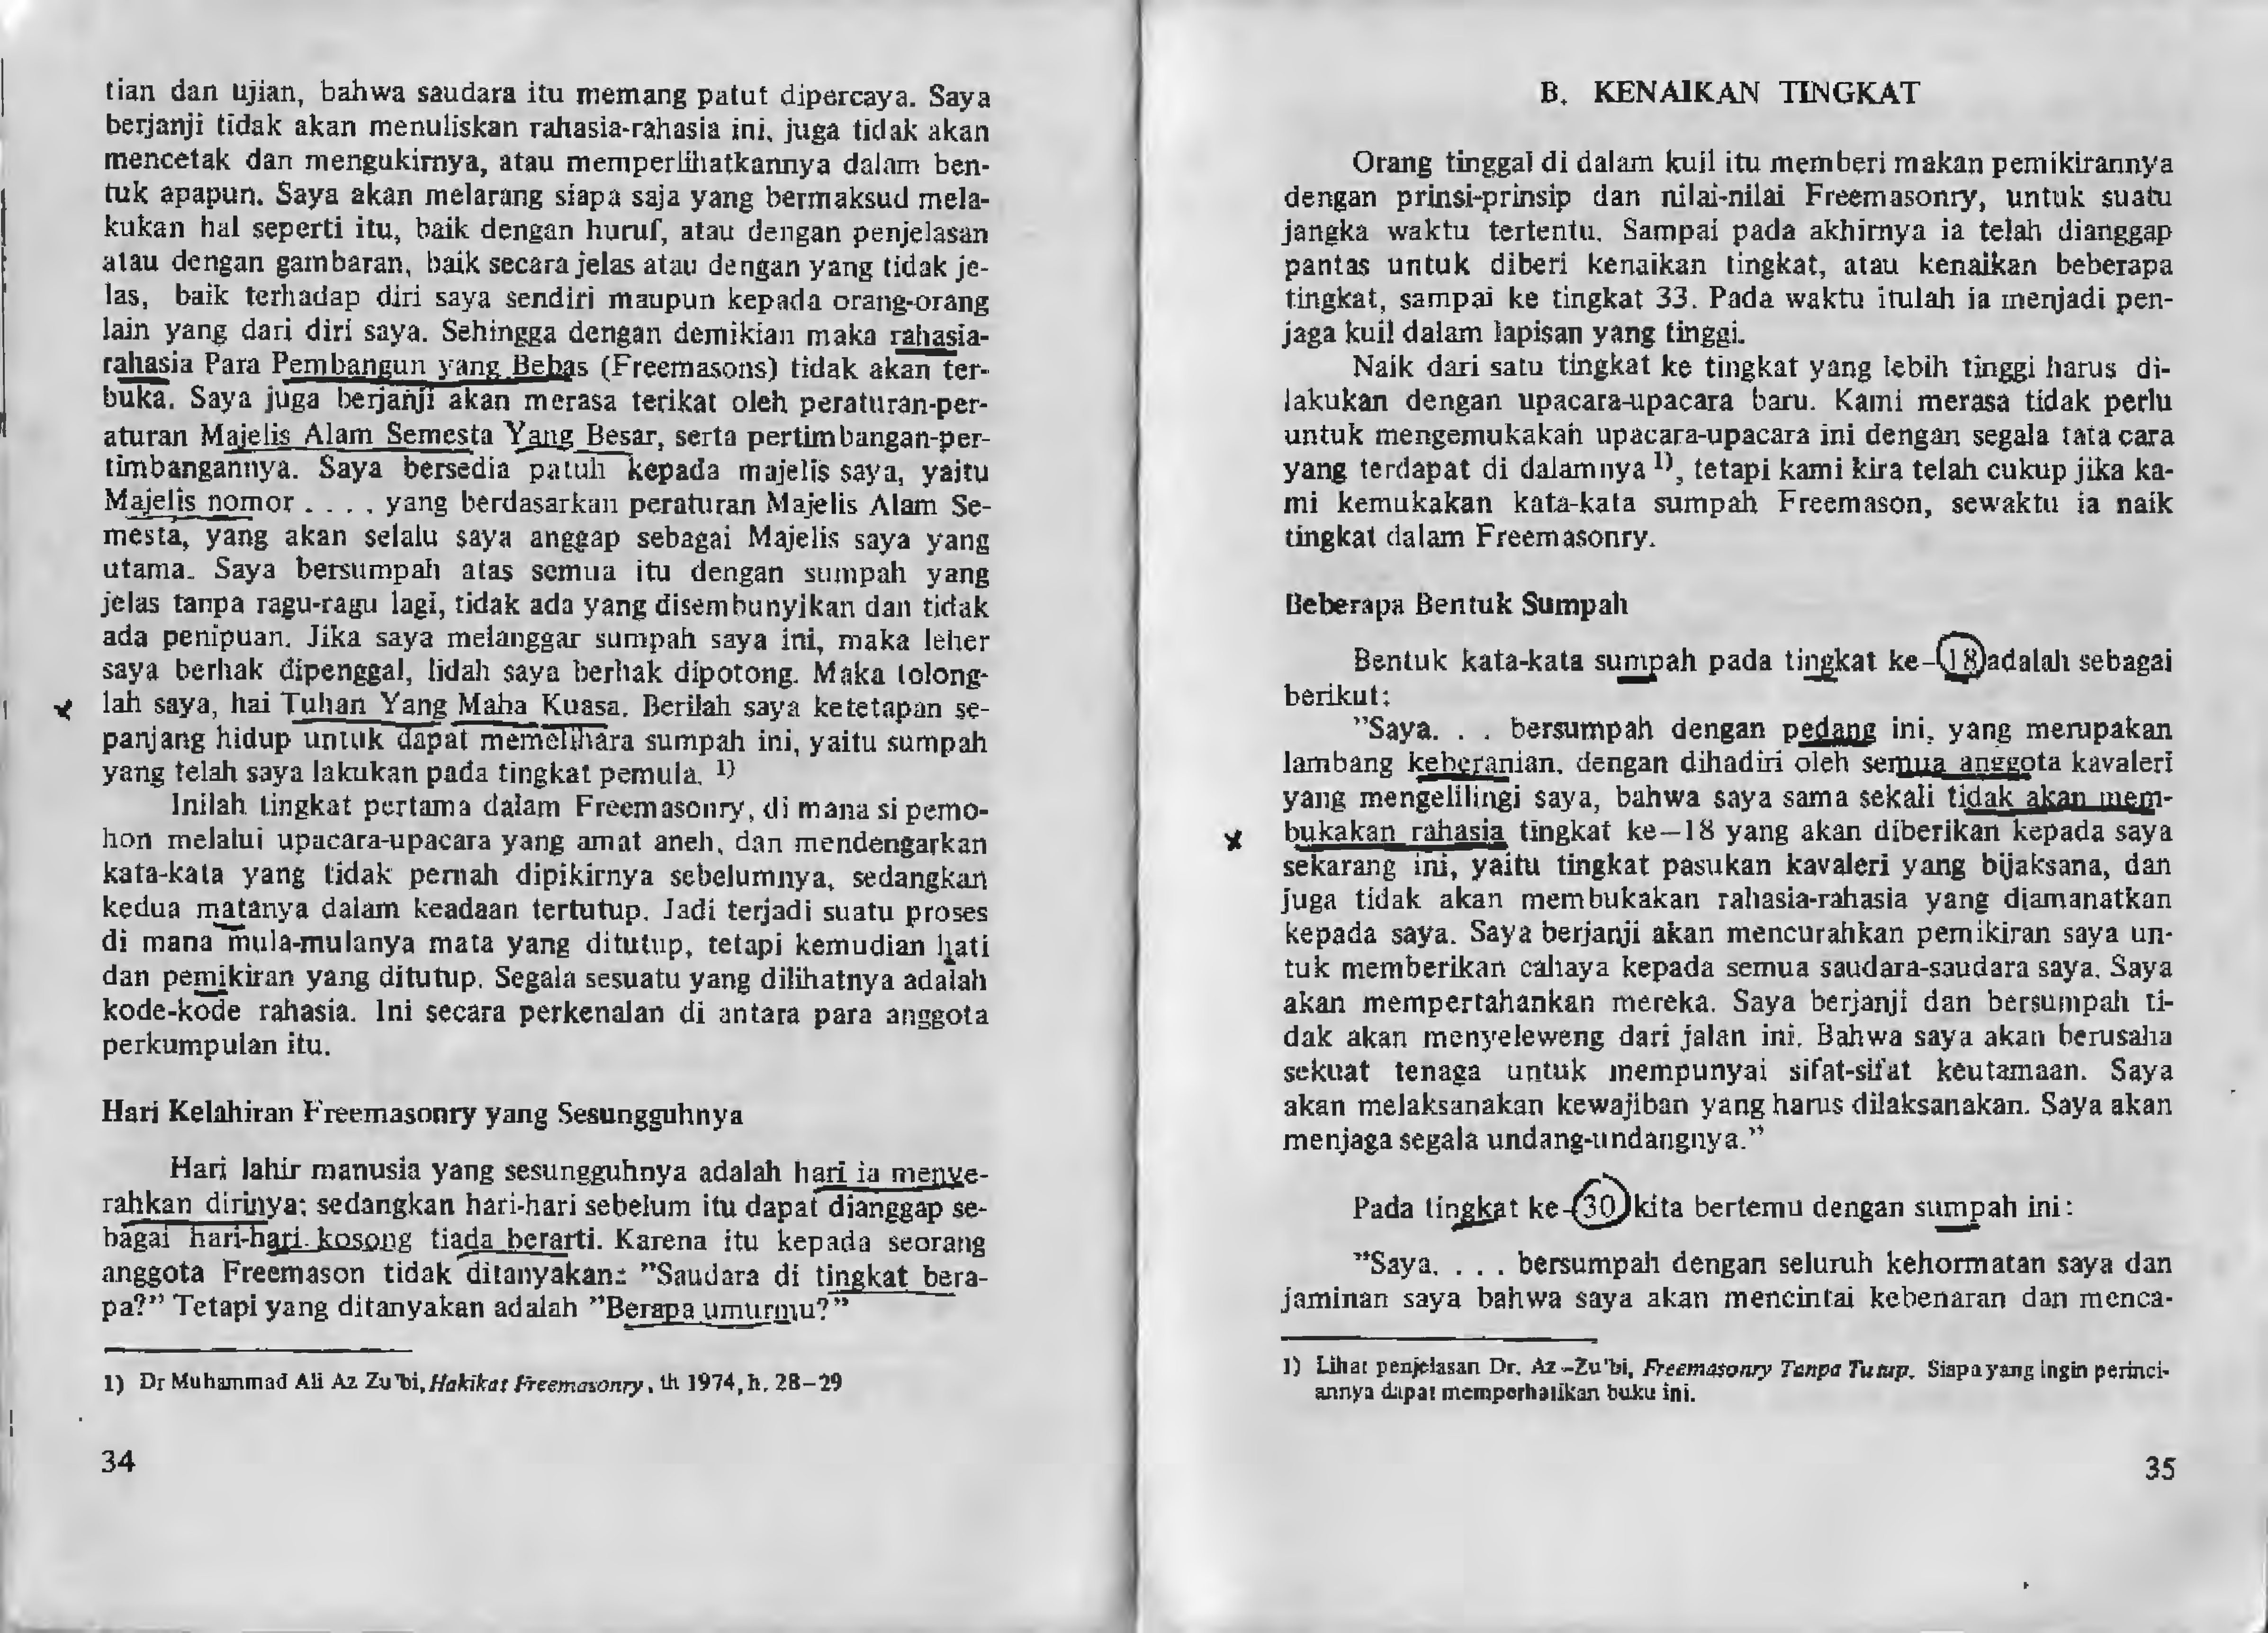 tian dan ujian, bahwa saudara itu memang patut dipercaya. Saya
berjanji tidak akan menuliskan rahasia-rahasia ini, juga tidak akan
mencetak dan mengukirnya, atau memperlihatkannya dalam ben-
tuk apapun. Saya akan melarang siapa saja yang bermaksud mela-
kukan hal seperti itu, baik dengan huruf, atau dengan penjelasan
atau dengan gambaran, baik secara jelas atau dengan yang tidak je-
las, baik terhadap diri saya sendiri maupun kepada orang-orang
lain yang dari diri saya. Sehingga dengan demikian maka rahasia-
rahasia Para Pembangun yang Bebas (Freemasons) tidak akan ter-
buka. Saya juga berjanji akan merasa terikat oleh peraturan-per-
aturan Majelis Alam Semesta Yang Besar, serta pertimbangan-per-
timbangannya. Saya bersedia patuh kepada majelis saya, yaitu
Majelis nomor . . . . yang berdasarkan peraturan Majelis Alam Se-
mesta, yang akan selalu saya anggap sebagai Majelis saya yang
utama. Saya bersumpah atas semua itu dengan sumpah yang
jelas tanpa ragu-ragu lagi, tidak ada yang disembunyikan dan tidak
ada penipuan. Jika saya melanggar sumpah saya ini, maka leher
saya berhak dipenggal, lidah saya berhak dipotong. Maka tolong-
lah saya, hai Tuhan Yang Maha Kuasa. Berilah saya ketetapan se-
panjang hidup untuk dapat memelihara sumpah ini, yaitu sumpah
yang telah saya lakukan pada tingkat pemula. 1)
Inilah tingkat pertama dalam Freemasonry, di mana si pemo-
hon melalui upacara-upacara yang amat aneh, dan mendengarkan
kata-kata yang tidak pernah dipikirnya sebelumnya, sedangkan
kedua matanya dalam keadaan tertutup. Jadi terjadi suatu proses
di mana mula-mulanya mata yang ditutup, tetapi kemudian hati
dan pemikiran yang ditutup. Segala sesuatu yang dilihatnya adalah
kode-kode rahasia. Ini secara perkenalan di antara para anggota
perkumpulan itu.
Hari Kelahiran Freemasonry yang Sesungguhnya
Hari lahir manusia yang sesungguhnya adalah hari ia menye-
rahkan dirinya; sedangkan hari-hari sebelum itu dapat dianggap se-
bagai hari-hari kosong tiada berarti. Karena itu kepada seorang
anggota Freemason tidak ditanyakan: "Saudara di tingkat bera-
pa?" Tetapi yang ditanyakan adalah "Berapa umurmu?"
1) Dr Muhammad Ali Az Zu'bi, Hakikat Freemasonry, th 1974, h. 28–29
34
B. KENAIKAN TINGKAT
Orang tinggal di dalam kuil itu memberi makan pemikirannya
dengan prinsi-prinsip dan nilai-nilai Freemasonry, untuk suatu
jangka waktu tertentu. Sampai pada akhirnya ia telah dianggap
pantas untuk diberi kenaikan tingkat, atau kenaikan beberapa
tingkat, sampai ke tingkat 33. Pada waktu itulah ia menjadi pen-
jaga kuil dalam lapisan yang tinggi.
Naik dari satu tingkat ke tingkat yang lebih tinggi harus di-
lakukan dengan upacara-upacara baru. Kami merasa tidak perlu
untuk mengemukakah upacara-upacara ini dengan segala tata cara
yang terdapat di dalamnya 1), tetapi kami kira telah cukup jika ka-
mi kemukakan kata-kata sumpah Freemason, sewaktu ia naik
tingkat dalam Freemasonry.
Beberapa Bentuk Sumpah
Bentuk kata-kata sumpah pada tingkat ke-18 adalah sebagai
berikut:
"Saya. . . bersumpah dengan pedang ini, yang merupakan
lambang keberanian, dengan dihadiri oleh semua anggota kavaleri
yang mengelilingi saya, bahwa saya sama sekali tidak akan mem-
bukakan rahasia tingkat ke—18 yang akan diberikan kepada saya
sekarang ini, yaitu tingkat pasukan kavaleri yang bijaksana, dan
juga tidak akan membukakan rahasia-rahasia yang diamanatkan
kepada saya. Saya berjanji akan mencurahkan pemikiran saya un-
tuk memberikan cahaya kepada semua saudara-saudara saya. Saya
akan mempertahankan mereka. Saya berjanji dan bersumpah ti-
dak akan menyeleweng dari jalan ini. Bahwa saya akan berusaha
sekuat tenaga untuk mempunyai sifat-sifat keutamaan. Saya
akan melaksanakan kewajiban yang harus dilaksanakan. Saya akan
menjaga segala undang-undangnya."
Pada tingkat ke-30 kita bertemu dengan sumpah ini:
"Saya. . . . bersumpah dengan seluruh kehormatan saya dan
jaminan saya bahwa saya akan mencintai kebenaran dan menca-
1) Lihat penjelasan Dr. Az–Zu'bi, Freemasonry Tanpa Tutup. Siapa yang ingin perinci-
annya dapat memperhatikan buku ini.
35